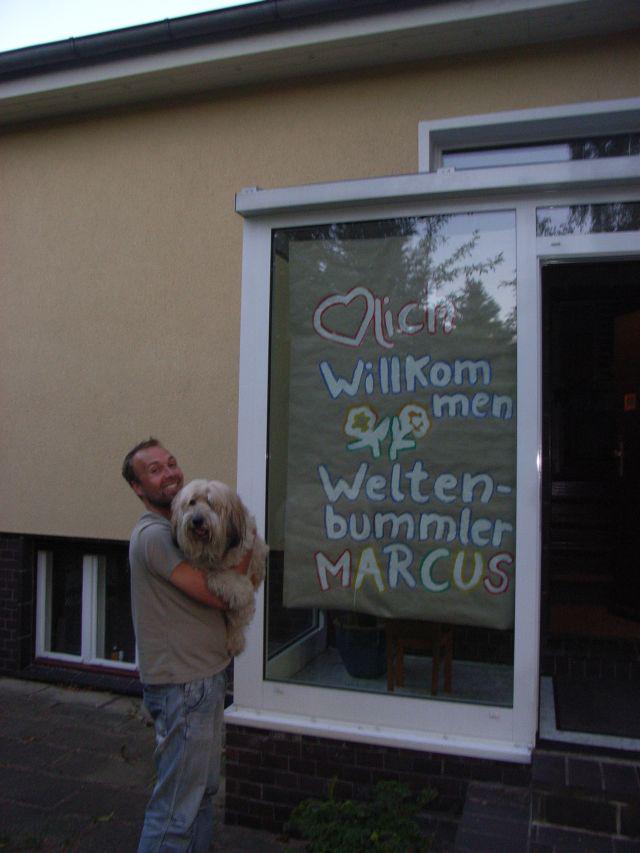 lich
Willkom
men
Welten-
bummler
MARCUS